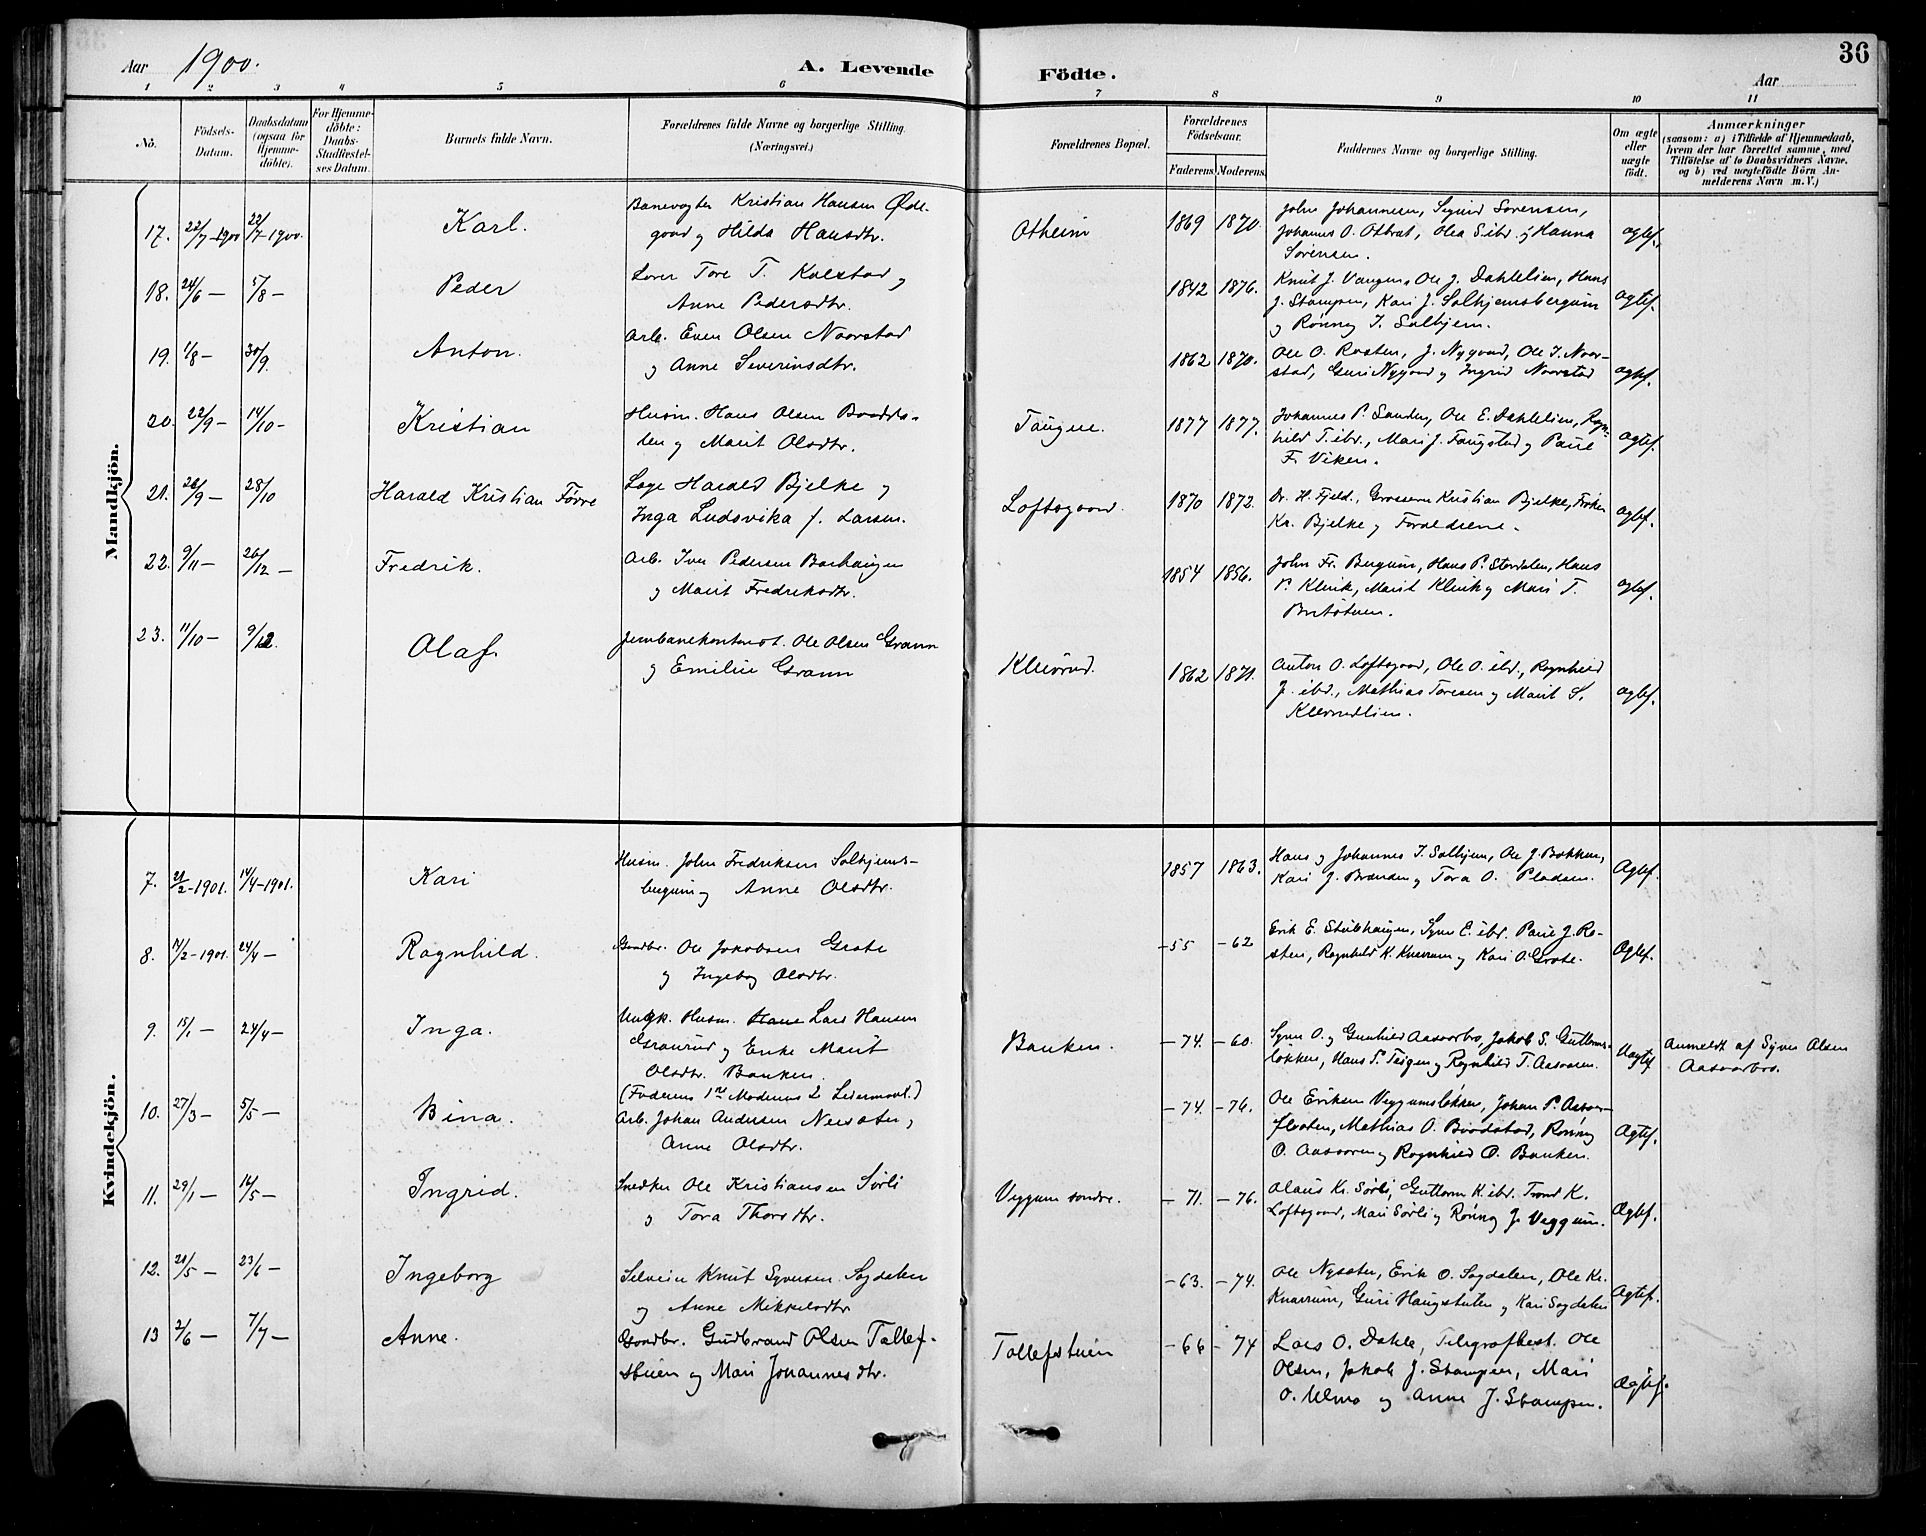 36
Aar 1900. A. Levende Födte. Aar
1 2 3 4 5 6 7 8 9 10 11
No. Födsels-Datum. Daabsdatum (ogsaa for Hjemmedöbte). For Hjemmedöbte: Daabs-Stadfæstelses Datum. Barnets fulde Navn. Forældrenes fulde Navne og borgerlige Stilling. (Næringsvei.) Forældrenes Bopæl. Forældrenes Födselsaar. Faderens. Moderens. Faddernes Navne og borgerlige Stilling. Om ægte eller uægte födt. Anmærkninger (saasom: a) i Tilfælde af Hjemmedaab, hvem der har forrettet samme, med Tilföielse af to Daabsvidners Navne, og b) ved uægtefödte Börn Anmelderens Navn m.V.)
Mandkjön.
17. 22/7-1900 22/7-1900. Karl. Banevogter Kristian Hansen Øde-
gaard og Hilda Hansdtr. Otheim 1869 1870. John Johannesen, Sigrid Sørensen,
Johannes O. Otbrat, Olea S. ibd. og Hanna
Sørensen. ægtef.
18. 24/6 — 5/8 — Peder Tore T. Kolstad og
Anne Pedersdtr. 1842 1876. Knut J. Vangen, Ole J. Dahlelien, Hans
J. Stampen, Kari J. Solhjemsbergum
og Rønnøg I. Solhjem. ægtef.
19. 1/8 — 30/9. Anton. Arb. Even Olsen Norstad
og Anne Severinsdtr. 1862 1870. Ole O. Rosten, J. Nygaard, Ole I. Nor-
stad, Guri Nygaard og Ingrid Norstad ægtef.
20. 22/9 — 14/10 — Kristian Husm. Hans Olsen
og Marit Olsdtr. Taugne. 1877 1877. Johannes P. Sanden, Ole E. Dahlelien, Ragn-
hild T. ibd., Mari J. Faugstad og Paul
F. Viken. ægtef.
21. 26/9 — 28/10 Harald Kristian Førre Læge Harald Bjelke og
Inga Ludovika f. Larsen. Loftsgaard. 1870 1872. Dr. H. Fjeld, Grosserer Kristian Bjelke, Frøken
Ka. Bjelke og Forældrene. ægtef.
22. 9/11 — 26/12 — Fredrik. Arb. Iver Pedersen Barhaugen
og Marit Fredriksdtr. 1854 1856. John Fr. Bergum, Hans P. Stordalen, Hans
P. Kleivik, Marit Kleivik og Mari T.
ægtef.
23. 11/10 — 9/12. Olaf. Jernbanekontorist. Ole Olsen Grann
og Emilie Grann Kleivrud. 1862 1871. Anton O. Loftsgaard, Ole O. ibd., Ragnhild
J. ibd., Mathias Toresen og Marit S.
Kleivrudlien. ægtef.
Kvindekjön.
7. 21/2-1901. 14/4-1901. Kari Husm. John Fredriksen Solhjems-
bergum og Anne Olsdtr. 1857 1863. Hans og Johannes I. Solhjem, Ole J. Bakken,
Kari J. Brænden og Tora O. Pladsen. Ægtef.
8. 17/2-1901. 24/4 — Ragnhild. Gaardbr. Ole Jakobsen Grøte
og Ingeborg Olsdtr. — 55 — 62 Erik E. Stubhaugen, Syver E. ibd. Paul J. Ro-
sten, Ragnhild K. Knarrum og Kari O. Grøte. Ægtef.
9. 15/1 — 24/4 — Inga. Ungk. Husm. Lars Hansen
Graurud og Enke Marit
Olsdtr. Banken.
(Faderens 1ste Moderens 2 Leiermaal.) Banken. — 74. — 60. Syver O. og Gunhild Aasaarbro, Jakob S. Guttorms-
løkken, Hans P. Teigen og Ragnhild T. Aasaaren. Uægtef Anmeldt af Syver Olsen
Aasaarbro.
10. 27/3 — 5/5 — Bina. Arb. Johan Andersen Neesæter,
Anne Olsdtr. — 74. — 76. Ole Eriksen Veggumsløkken, Johan P. Aasaar-
floten, Mathias O. Bredstad, Rønnøg
O. Aasaaren og Ragnhild O. Banken. Ægtef.
11. 29/1 — 16/5 — Ingrid. Snedker Ole Kristiansen Sørli
og Tora Thorsdtr. Veggum søndre. — 71. — 76. Olaus Kr. Sørli, Guttorm K. ibd. Trond K.
Loftsgaard, Mari Sørli og Rønnøg J. Veggum. Ægtef.
12. 20/5 — 23/6 — Ingeborg Selveier Knut Syversen Sagdalen
og Anne Mikkelsdtr — 63. — 74. Ole Nysæter, Erik O. Sagdalen, Ole Kr.
Knarrum, Guri Haugstulen og Kari Sagdalen Ægtef.
13 2/6 — 7/7 — Anne. Gaardbr. Gudbrand Olsen Tollef-
stuen og Mari Johannesdtr. Tollefstuen — 66 — 74 Lars O. Dahle, Telegrafbest. Ole
Olsen, Jakob J. Stampen, Mari
O. Ulmo og Anne J. Stampen. Ægtef.